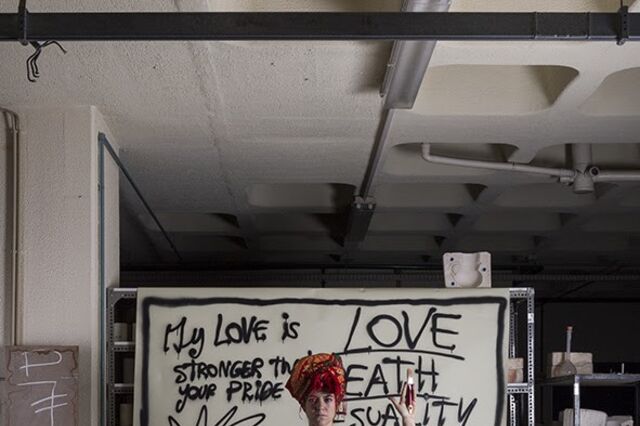 My LOVE is
STRONGER Th
YOUR PRIDE
LOVE
EATH
SUALITY